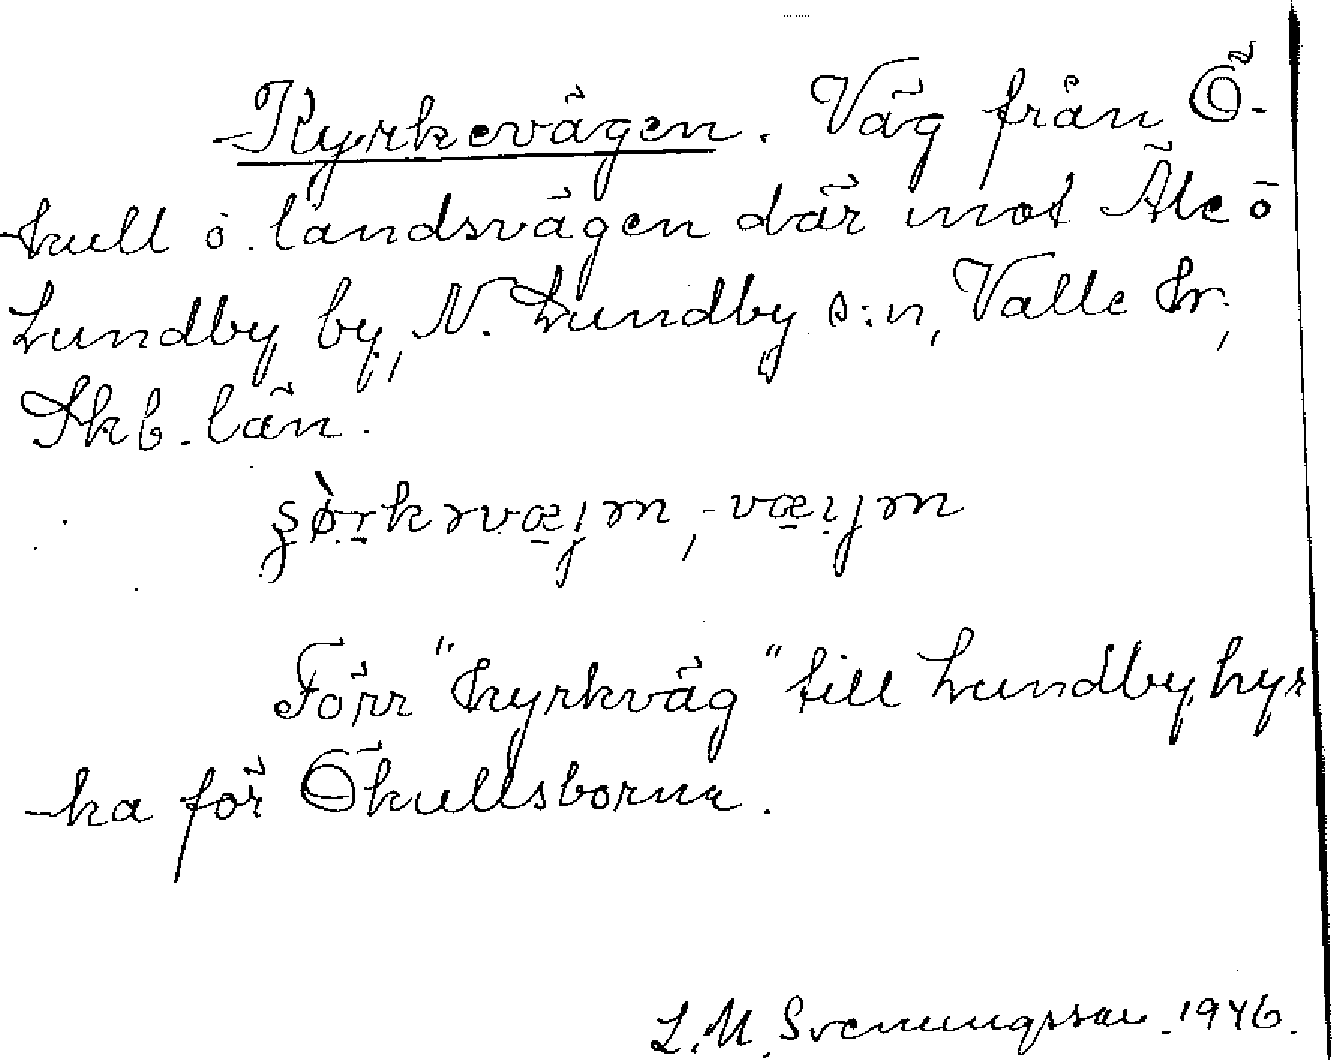 Kyrkevägen. Väg från Ö-
kull o. landsvägen där mot Äle o
Lundby by, N. Lundby s:n, Valle hr,
Skb. län.
Förr "kyrkväg" till Lundby kyr
ka för Ökullsborna.
L. M. Svenungsson. 1946.